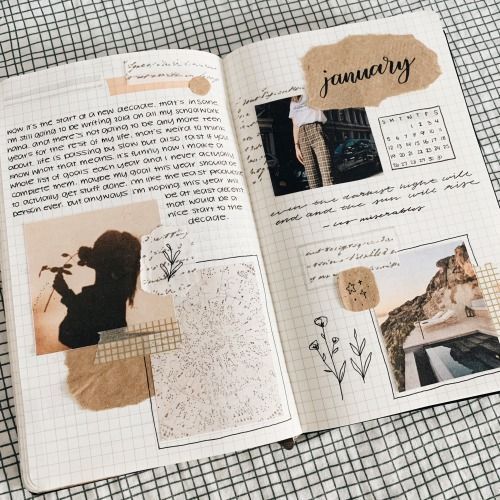 wow it's me start of a new decade. that's insane.
i'm still going to be writing 2019 on all my schoolwork
haha. and there's not going to be any more teen
years for the rest of my life. that's weird to think
about. life is passing by slow but also fast if you
know what that means. it's funny how i make a
whole list of goals each year and i never actually
complete them. maybe my goal this year should be
to actually get stuff done. i'm like the least productive
person ever. but anyways. i'm hoping this year will
be at least decent
that would be a
nice start to the
decade.
january
S M T W T F S
1 2 3 4
5 6 7 8 9 10 11
12 13 14 15 16 17 18
19 20 21 22 23 24 25
26 27 28 29 30 31
even the darkest night will
end and the sun will rise
- les miserables